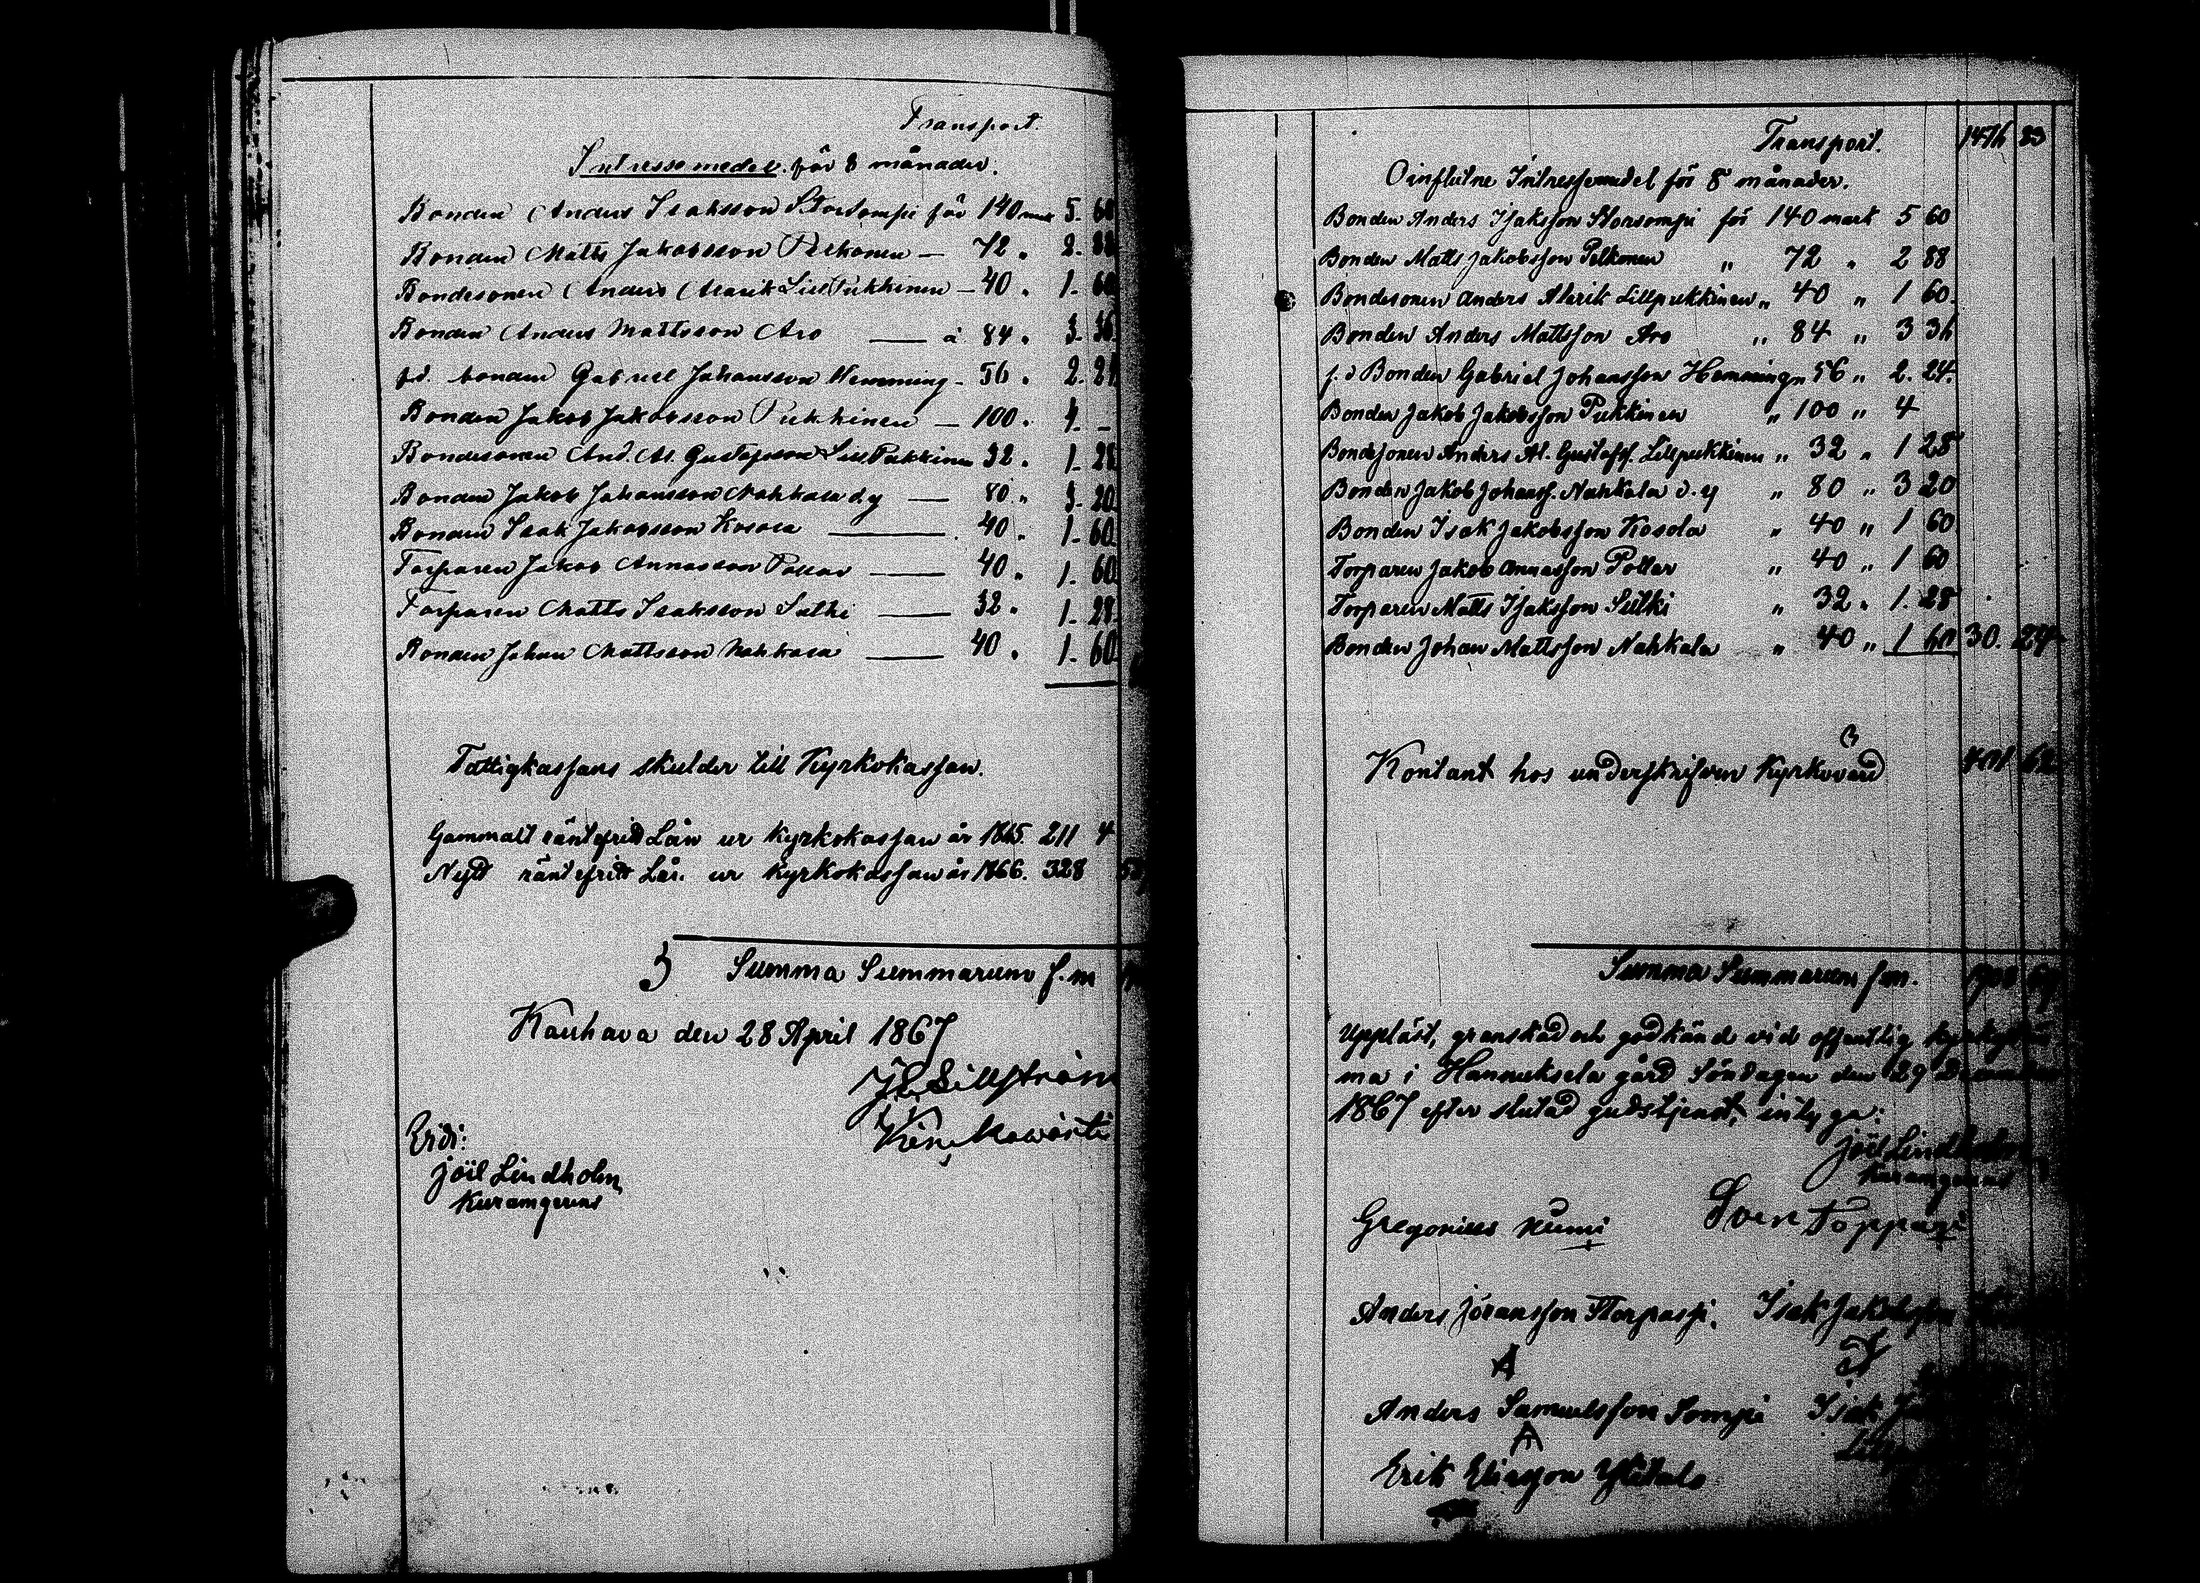 Transport.
Intressemedel för 8 månader.
Bonden Anders Isaksson Storsompi för 140 mark 5. 60
Bonden Matts Jakobsson Pelkonen — 72 " 2. 88
Bondesonen Anders Alarik Lillpukkinen — 40 " 1. 60
Bonden Anders Mattsson Aro — à 84 " 3. 36
f.d. bonden Gabriel Johansson Hemming - 56 " 2. 24
Bonden Jakob Jakobsson Pukkinen — 100 " 4. -
Bondesonen And. Al. Gustafsson Lill Pukkinen 32 " 1. 28
Bonden Jakob Johansson Nahkala d.y — 80 " 3. 20
Bonden Isak Jakobsson Kosola — 40 " 1. 60
Torparen Jakob Annasson Pollar — 40 " 1. 60
Torparen Matts Isaksson — 32 " 1. 28
Bonden Johan Mattsson Nahkala — 40 " 1. 60
Fattigkassans skulder till Kyrkokassan.
Gammalt räntefritt Lån ur Kyrkokassan år 1865. 211 4
Nytt räntefritt Lån ur Kyrkokassan år 1866. 328
Summa Summarum s.m
Kauhava den 28 April 1867
J. Lillström
Kyrkovärd
Vidi:
Joël Lindholm
Kuramgerens
Transport. 1476 83
Oinflutne Intressemedel för 8 månader.
Bonden Anders Isaksson Storsompi för 140 mark 5 60
Bonden Matts Jakobsson Pelkonen " 72 " 2 88
Bondesonen Anders Alarik Lillpukkinen " 40 " 1 60
Bonden Anders Mattsson Aro " 84 " 3 36
f.d Bonden Gabriel Johansson Hemming " 56 " 2. 24
Bonden Jakob Jakobsson Pukkinen " 100 " 4
Bondesonen Anders Al. Gustafss. Lillpukkinen " 32 " 1 28
Bonden Jakob Johanss. Nahkala d.y " 80 " 3 20
Bonden Isak Jakobsson Kosola " 40 " 1 60
Torparen Jakob Annasson Pollar " 40 " 1 60
Torparen Matts Isaksson " 32 " 1. 28
Bonden Johan Mattsson Nahkala " 40 " 1 60 30. 24
Kontant hos underskrifven Kyrkovärd 62
Summa Summarum s.m.
Uppläst, granskad och godkänd vid offentlig
ma i Hannuksela gård Söndagen den 29 December
1867 efter slutad gudstjenst, intyga:
Joël Lindholm
Kuramgerens
Gregorius Sven
Anders Jöransson Isak Jakobsson
A
Anders Samuelsson Sompi Isak
A
Erik Eliasson